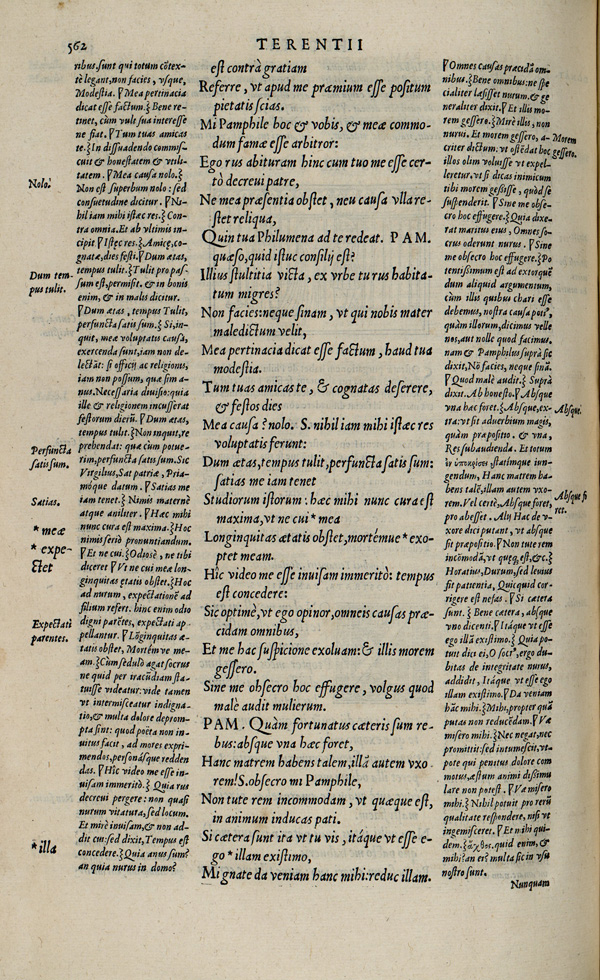 562
TERENTII
ribus, sunt qui totum cõtex-
tè legant, non facies, vsque,
Modestia. ꝟ Mea pertinacia
dicat esse factum.ξ Bene re-
tinet, cùm vult sua interesse
ne fiat. ꝟ Tum tuas amicas
te.ξ In dissuadendo commis-
cuit & honestatem & vtili-
tatem. ꝟ Mea causa nolo.ξ
Non est superbum nolo: sed
consuetudine dicitur. ꝟ Ni-
hil iam mihi istæc res.ξ Con-
tra omnia. Et ab vltimis in-
cipit ꝟ Istæc res.ξ Amicę, co-
gnatæ, dies festi. ꝟ Dum ætas,
tempus tulit.ξ Tulit pro pas-
sum est, permisit, & in bonis
enim, & in malis dicitur.
ꝟ Dum ætas, tempus Tulit,
perfuncta satis sum.ξ Si, in-
quit, mea voluptatis causa,
exercenda sunt, iam non de-
lectãt: si officij ac religionis,
iam non possum, quæ sim a-
nus. Necessaria diuisio: quia
ille & religionem incusserat
festorum dierũ. ꝟ Dum ætas,
tempus tulit.ξ Non inquit, re
prehendat: quæ cùm potue-
rim, perfuncta satis sum. Sic
Virgilius, Sat patriæ, Pria-
móque datum. ꝟ Satias me
iam tenet.ξ Nimis maternè
atque aniliter. ꝟ Hæc mihi
nunc cura est maxima.ξ Hoc
nimis seriò pronuntiandum.
ꝟ Et ne cui.ξ Odiosè, ne tibi
diceret ꝟ Vt ne cui meæ lon-
ginquitas ętatis obstet.ξ Hoc
ad nurum, expectationẽ ad
filium refert. hinc enim odio
digni parẽtes, expectati ap-
pellantur. ꝟ Lõginquitas æ-
tatis obstet, Mortém ve me-
am.ξ Cùm sedulò agat socrus
ne quid per iracũdiam sta-
tuisse videatur: vide tamen
vt intermisceatur indigna-
tio, & multa dolore deprom-
pta sint: quod poëta non in-
uitus facit, ad mores expri-
mendos, personásque redden
das. ꝟ Hîc video me esse in-
uisam immeritò.ξ Quia rus
decreui pergere: non quasi
nurum vitatura, sed locum.
Et mirè inuisam, & non ad-
dit cui: sed dixit, Tempus est
concedere.ξ Quia anus sum?
an quia nurus in domo?
Nolo.
Dum tem-
pus tulit.
Perfuncta
satis sum.
Satias.
* meæ
* expe-
ctet
Expectati
parentes.
*illa
est contrà gratiam
Referre, vt apud me præmium esse positum
pietati scias.
Mi Pamphile hoc & vobis, & meæ commo-
dum famæ esse arbitror:
Ego rus abituram hinc cum tuo me esse cer-
tò decreui patre,
Ne mea præsentia obstet, neu causa vlla re-
stet reliqua,
Quin tua Philumena ad te redeat. P A M.
quæso, quid istuc consilij est?
Illius stultitia victa, ex vrbe tu rus habita-
tum migres?
Non facies: neque sinam, vt qui nobis mater
maledictum velit,
Mea pertinacia dicat esse factum, haud tua
modestia.
Tum tuas amicas te, & cognatas deserere,
& festos dies
Mea causa? nolo. S. nihil iam mihi istæc res
voluptatis ferunt:
Dum ætas, tempus tulit, perfuncta satis sum:
satias me iam tenet
Studiorum istorum: hæc mihi nunc cura est
maxima, vt ne cui * mea
Longinquitas ætatis obstet, mortémue * exo-
ptet meam.
Hîc video me esse inuisam immeritò: tempus
est concedere:
Sic optimè, vt ego opinor, omneis causas præ-
cidam omnibus,
Et me hac suspicione exoluam: & illis morem
gessero.
Sine me obsecro hoc effugere, volgus quod
malè audit mulierum.
PAM. Quàm fortunatus cæteris sum re-
bus: absque vna hæc foret,
Hanc matrem habens talem, illã autem vxo
rem! S. obsecro mi Pamphile,
Non tute rem incommodam, vt quæque est,
in animum inducas pati.
Si cætera sunt ita vt tu vis, itáque vt esse e-
go * illam existimo,
Mi gnate da veniam hanc mihi: reduc illam.
ꝟ Omnes causas præcidã om-
nibus.ξ Bene omnibus: ne spe
cialiter læsisset nurum. & ge
neraliter dixit. ꝟ Et illis mo-
rem gessero.ξ Mirè illis, non
nurus. Et morem gessero, a-
criter dictum: vt ostẽdat hoc
illos olim voluisse vt expel-
leretur. vt si dicas inimicum
tibi morem gessisse, quòd se
suspenderit. ꝟ Sine me obse-
cro hoc effugere.ξ Quia dixe-
rat maritus eius, Omnes so-
crus oderunt nurus. ꝟ Sine
me obsecro hoc effugere.ξ Po
tentissimum est ad extorquẽ
dum aliquid argumentum,
cùm illis quibus chari esse
debemus, nostra causa potiº,
quàm illorum, dicimus velle
nos, aut nolle quod facimus.
nam & Pamphilus suprà sic
dixit, Nõ facies, neque sinã.
ꝟ Quod malè audit.ξ Suprà
dixit. Ab honesto. ꝟ Absque
vna hæc foret.ξ Absque, ex-
tra: vt sit aduerbium magis,
quàm præpositio. & vna,
Res subaudienda. Et totum
statimque iun-
gendum, Hanc matrem ha-
bens talẽ, illam autem vxo-
rem. Vel certè, Absque foret,
pro abesset. Alij Hac de v-
xore dici putant, vt absque
sit præpositio. ꝟ Non tute rem
incõmodã, vt quęq; est, &c.ξ
Horatius, Durum, sed leuius
fit patientia, Quicquid cor-
rigere est nefas. ꝟ Si cætera
sunt.ξ Bene cætera, absque
vno dicenti. ꝟ Itáque vt esse
ego illã existimo.ξ Quia po-
tuit dici ei, O socrº, ergo du-
bitas de integritate nurus,
addidit, Itáque vt esse ego
illam existimo. ꝟ Da veniam
hãc mihi.ξ Mihi, propter quã
putas non reducẽdam. ꝟ Væ
misero mihi.ξ Nec negat, nec
promittit: sed intumescit, vt-
pote qui penitus dolore com
motus, æstum animi dissimu
lare non potest. ꝟ Væ misero
mihi.ξ Nihil potuit pro rerũ
qualitate respondere, nisi vt
ingemisceret. ꝟ Et mihi qui-
dem.ξ quid enim, &
mihi? an er? multa sic in vsu
nostro sunt.
Morem
gessero.
Absque.
Absque fo
ret.
Nunquam